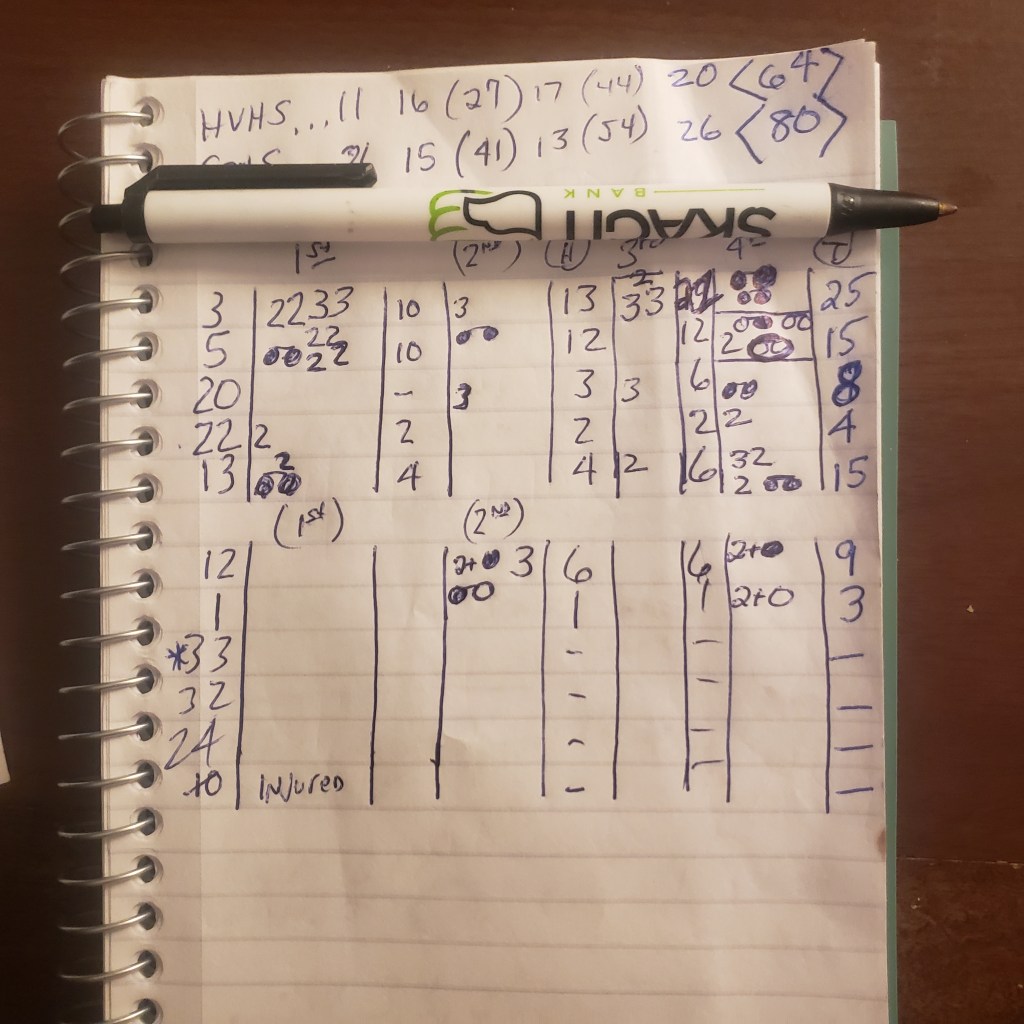 HVHS...11 16 (27) 17 (44) 20 <64>
15 (41) 13 (54) 26 <80>
SKAGIT
BANK
1st (2nd) (H) 3rd 4th (T)
3 2233 10 3 13 2 33 25
5 22 22 10 12 12 2 15
20 - 3 3 3 6 8
22 2 2 2 2 2 4
13 2 4 4 12 16 32 2 15
(1st) (2nd)
12 2+ 3 6 6 2+ 9
1 1 1 2+0 3
*33 - - -
32 - - -
24 - - -
10 INJURED - - -